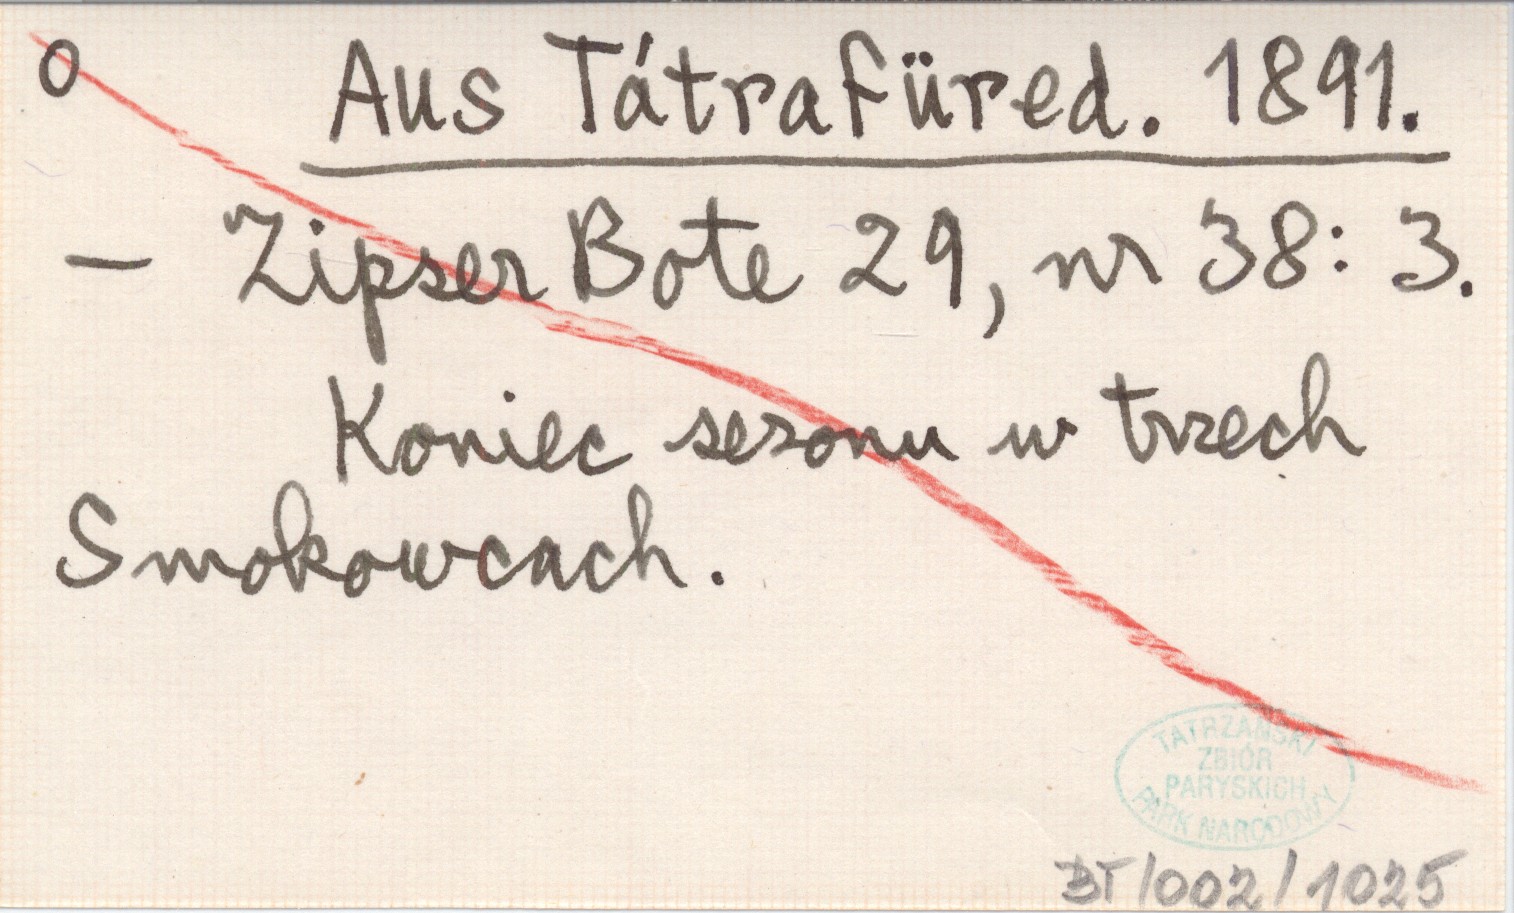 o Aus Tátrafüred. 1891.
— Zipser Bote 29, nr 38: 3.
Koniec sezonu w trzech
Smokowcach.
TATRZAŃSKI
ZBIÓR
PARYSKICH
PARK NARODOWY
BT/002/1025